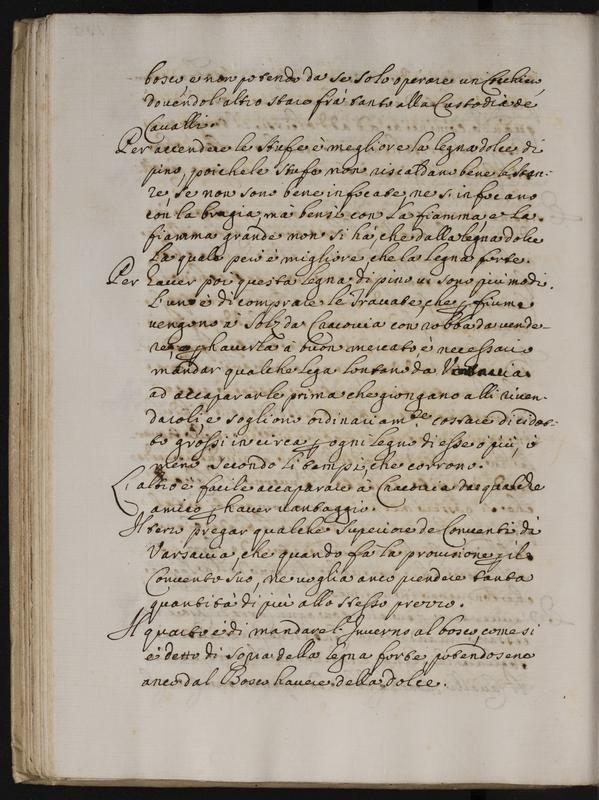 bosco, e non potendo da se solo operare un Cochiero
dovendo l'altro stare frà tanto alla Custodia de
Cavalli.
Per accendere le stufe è megliore la legna dolce di
pino, poiche le stufe non riscaldano bene le stan:
re, se non sono bene infocate, ne s'infocano
con la bragia, mà bensì con la fiamma, e la
fiamma grande non si hà, che dalla legna dolce
la quale però è migliore, che la legna forte.
Per haver poi questa legna di pino vi sono più modi.
L'uno è di comprare le Travate, che p fiume
vengono à da Cracovia con robba da vende:
re, e p haverla à buon mercato, è necessario
mandar qualche lega lontano da Varsavia
ad accapararle prima che giongano alli riven:
daroli, e sogliono ordinariam.te costare dieidot:
to grossi in circa p ogni legno di esse, ò più, ò
meno secondo li tempi, che corrono.
L'altro è farle accaparare à Cracovia da qualche
amico p haver vantaggio.
Il terzo pregar qualche Superiore de Conventi di
Varsavia, che quando fa la provisione p il
Convento suo, ne voglia anco prendere tanta
quantità di più allo stesso prezzo.
Il quarto è di mandare l'Inverno al bosco, come si
è detto di sopra della legna forte, potendosene
anco dal Bosco havere della dolce.